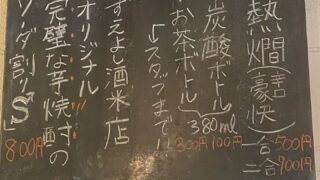 熱燗(善豪快)
一合 500円
二合 900円
炭酸ボトル
お茶ボトル
380ml
300円 100円
↓スタッフまで!!
すえよし酒米店
オリジナル
完璧な芋焼酎の
ソーダ割り"S"
800円